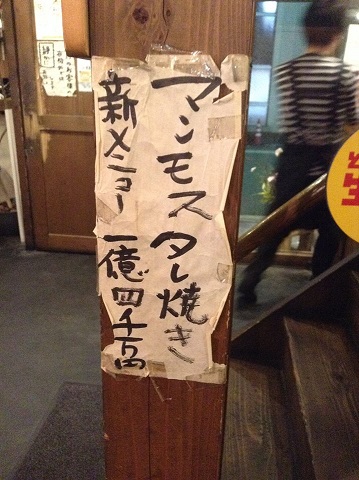 マンモスタレ焼き
新メニュー 一億四千万円
生